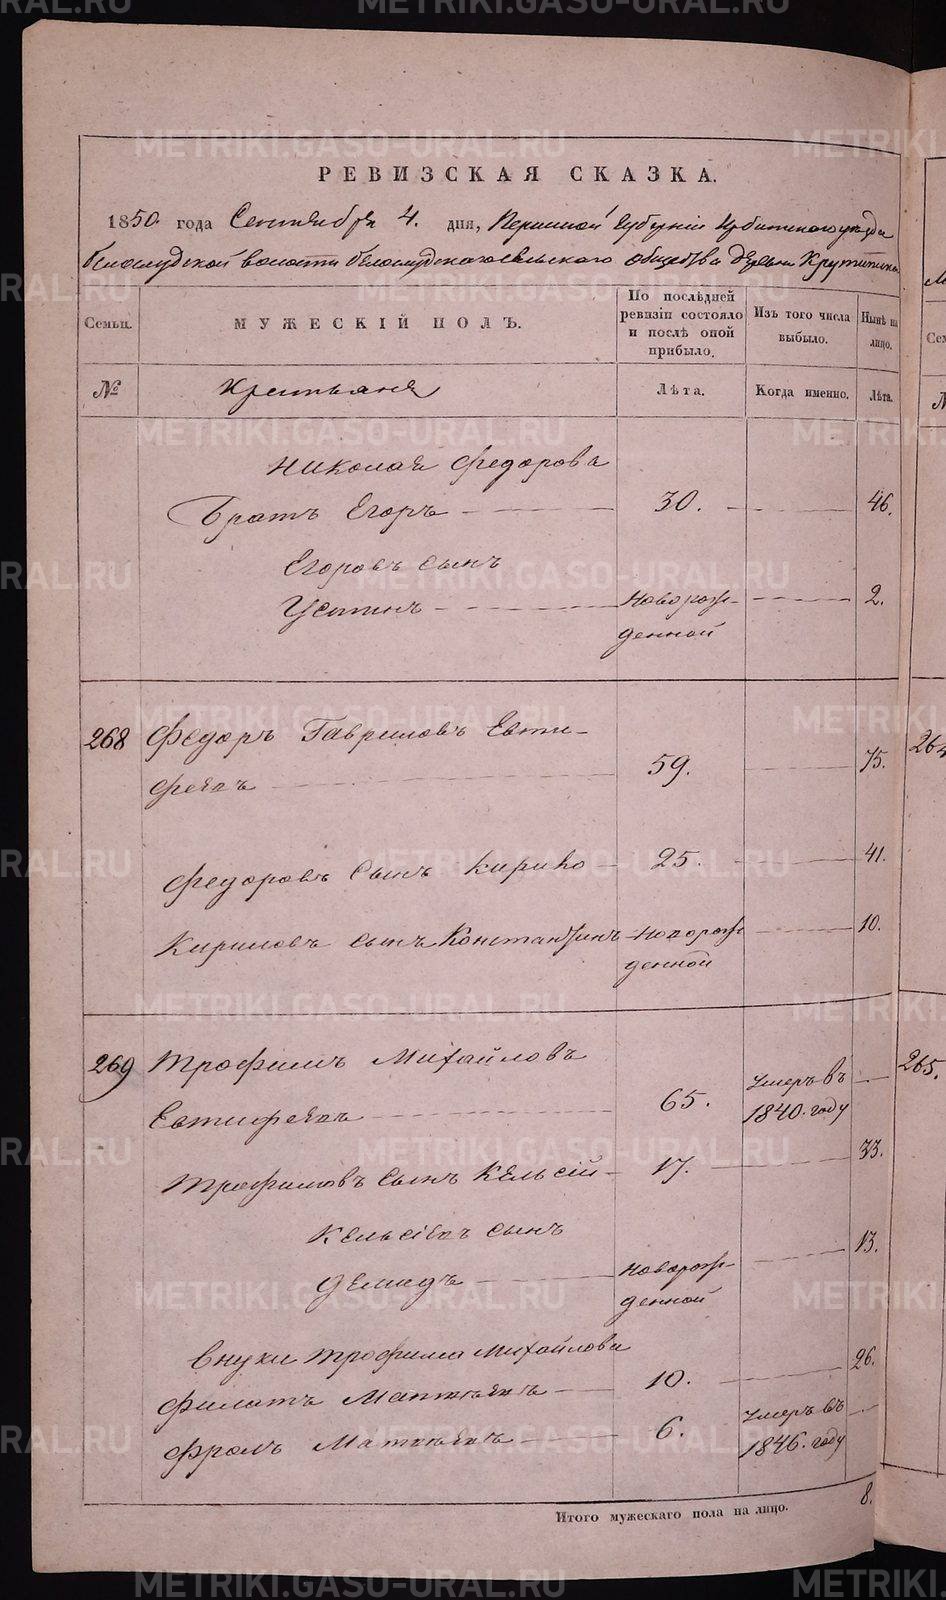 РЕВИЗСКАЯ СКАЗКА.
1850. года Сентября 4. дня, Пермской Губернiи Ирбитского уезда
белослудской волости белослудского сельского общества деревни Крутихи
Семьи. МУЖЕСКIЙ ПОЛЪ. По послѣдней ревизiи состояло и послѣ оной прибыло. Изъ того числа выбыло. Нынѣ на лицо.
№ Крестьяне Лѣта. Когда именно. Лѣта.
Николая Федорова
Братъ Егоръ 30. 46.
Егоровъ сынъ
Устинъ Новорож- 2.
денной
268 Федоръ Гавриловъ Евти-
феевъ 59. 75.
Федоровъ Сынъ Кирило 25. 41.
Кириловъ сынъ Константинъ Новорож- 10.
денной
269 Трофимъ Михайловъ
Евтифеевъ 65. Умеръ въ 1840. году
Трофимовъ Сынъ Кельсiй 17. 33.
Кельсiевъ сынъ
Демидъ Новорож- 13.
денной
Внуки Трофима Михайлова
Филатъ Матвеевъ 10. 26.
Фролъ Матвеевъ 6. Умеръ въ 1846. году
Итого мужескаго пола на лицо. 8.
264
265.
METRIKI.GASO-URAL.RU